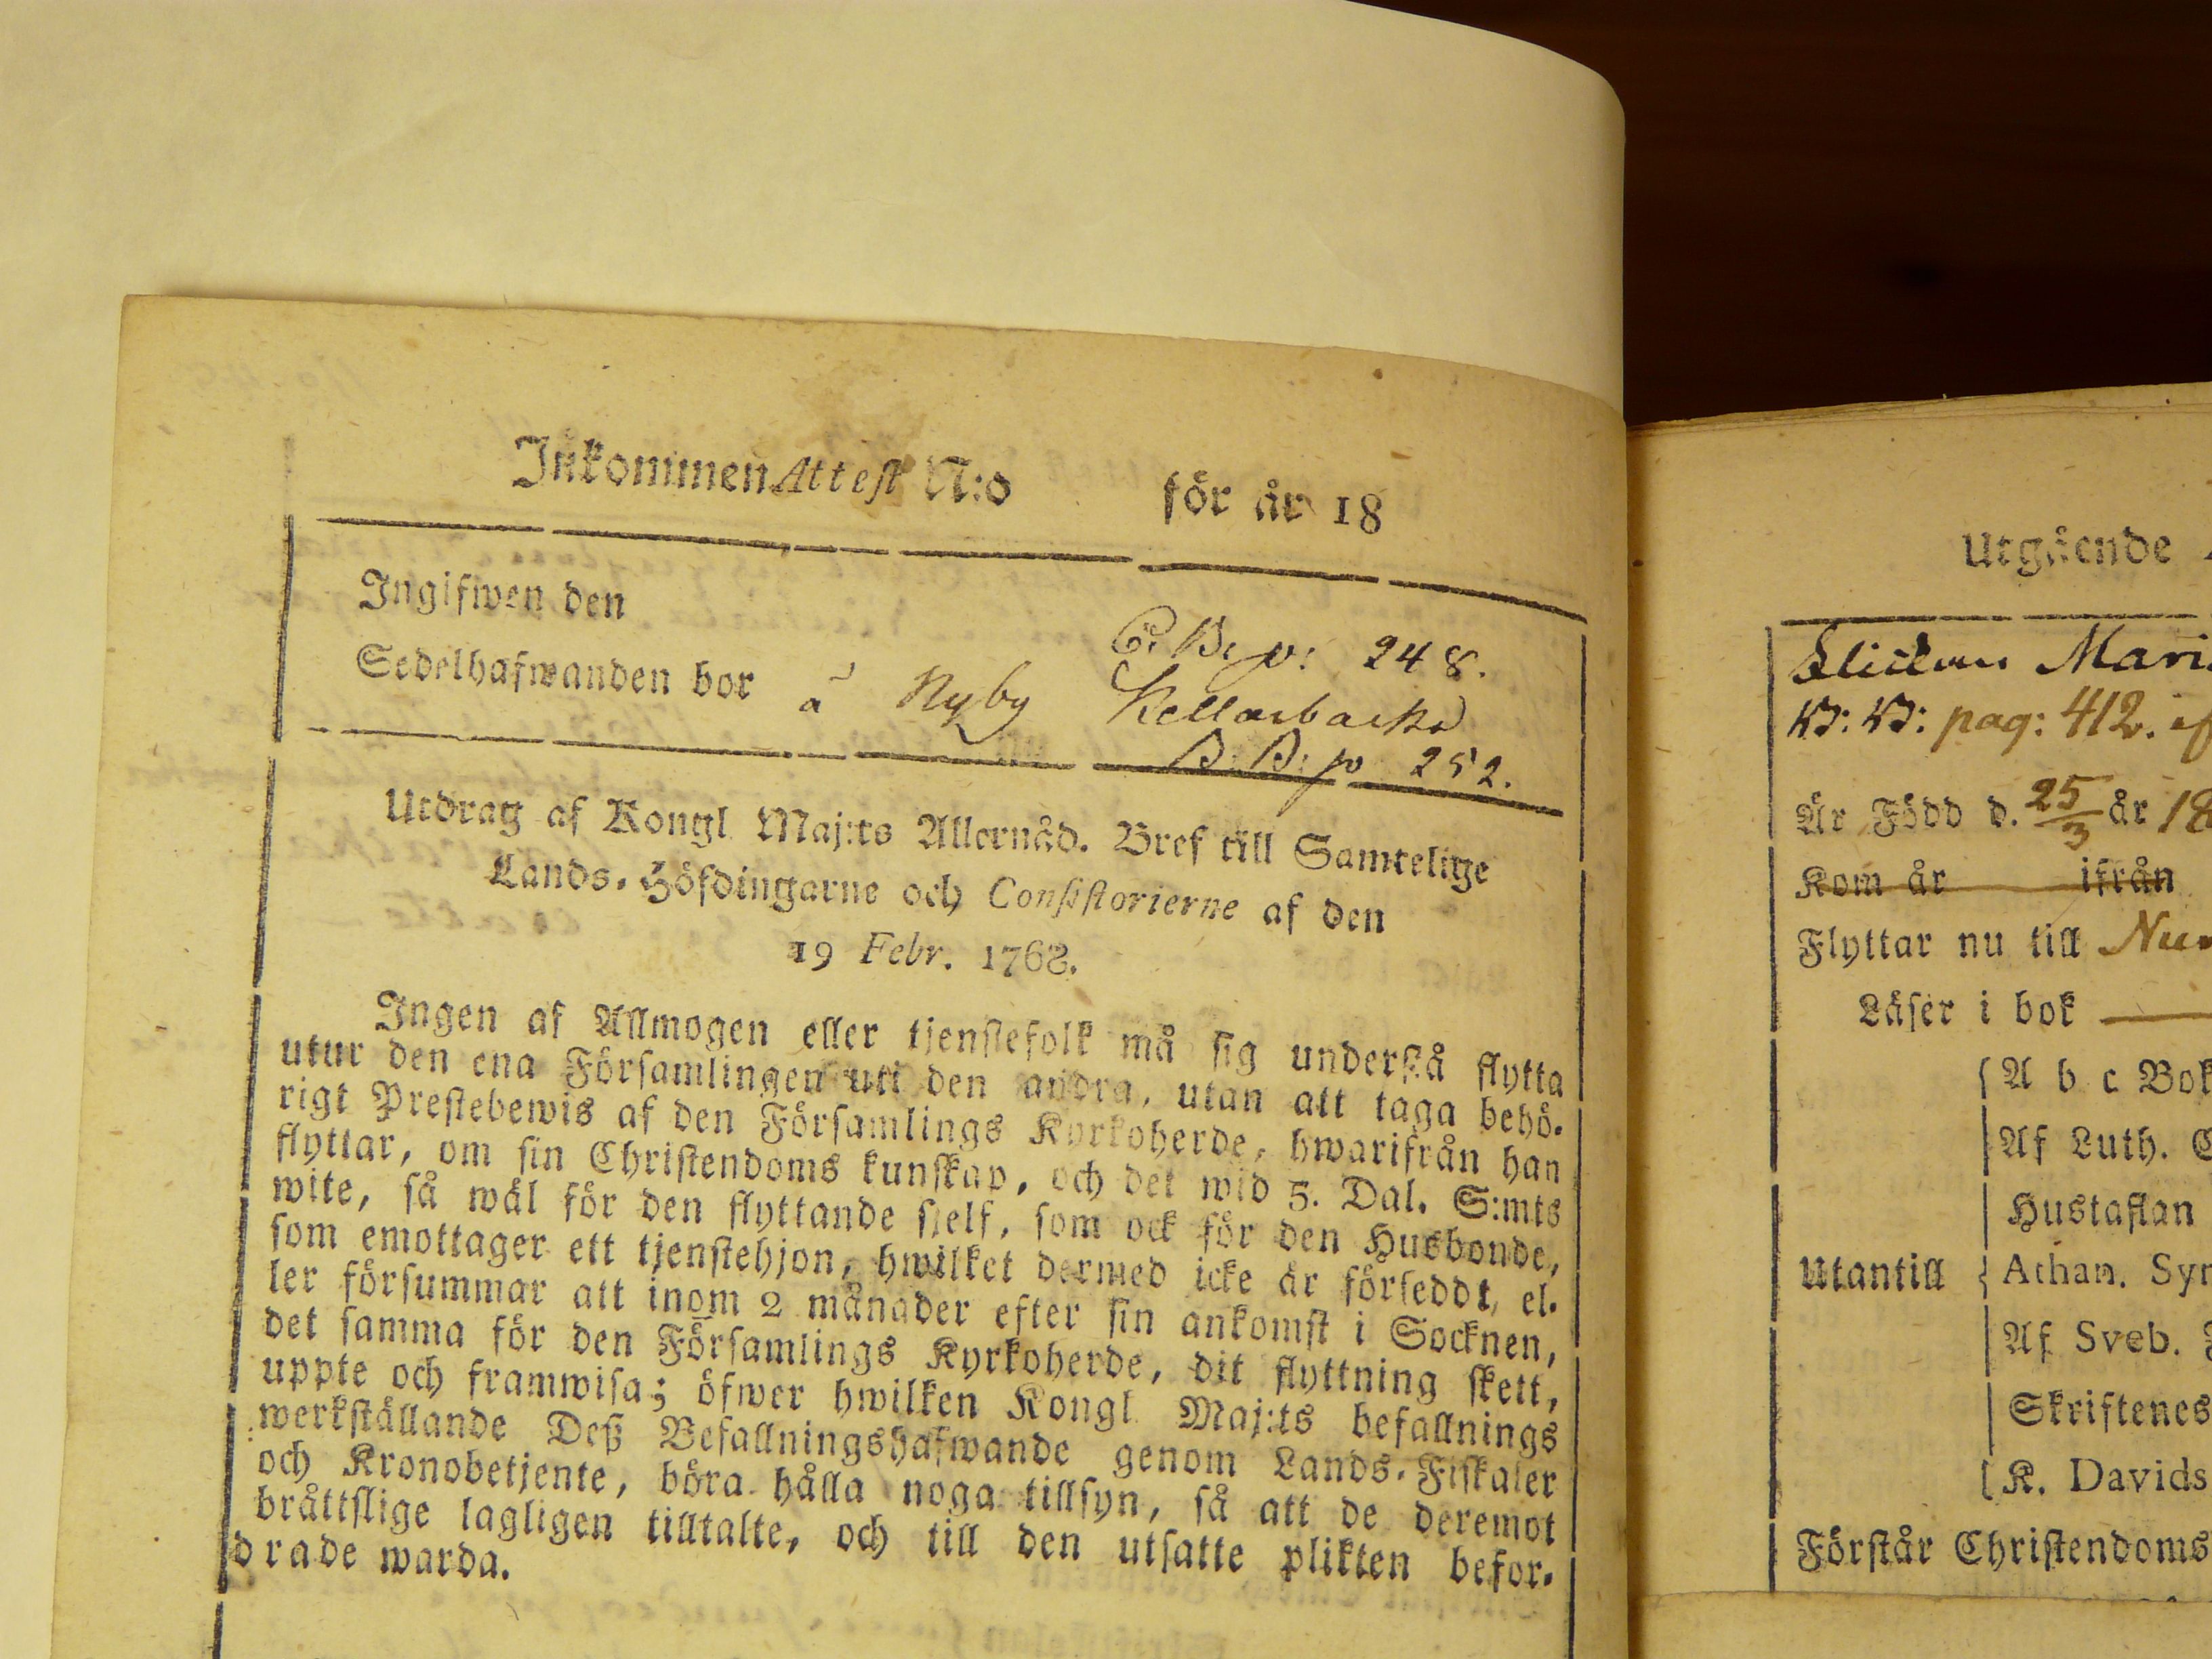 Inkommen Attest N:o för år 18
Ingifwen den
C. B. p: 248.
Sedelhafwanden bor å Nyby Kellarbacka
B: B: p 252.
Utdrag af Kongl Maj:ts Allernåd. Bref till Samtelige
Lands-Höfdingarne och Consistorierne af den
19 Febr. 1768.
Ingen af Allmogen eller tjenstefolk må sig understå flytta
utur den ena Församlingen uti den andra, utan att taga behö-
rigt Prestebewis af den Församlings Kyrkoherde, hwarifrån han
flyttar, om sin Christendoms kunskap, och det wid 5. Dal. S:mts
wite, så wäl för den flyttande sjelf, som ock för den Husbonde,
som emottager ett tjenstehjon, hwilket dermed icke är förseddt, el-
ler försummar att inom 2 månader efter sin ankomst i Socknen,
det samma för den Församlings Kyrkoherde, dit flyttning skett,
uppte och framwisa; öfwer hwilken Kongl Maj:ts befallnings
werkställande Deß Befallningshafwande genom Lands-Fiskaler
och Kronobetjente, böra hålla noga tillsyn, så att de deremot
bråttslige lagligen tilltalte, och till den utsatte plikten befor-
drade warda.
Utgående
Flickan Mari
B: B: pag: 412.
Är Född d. 25/3 år 18
Kom år ifrån
Flyttar nu till
Läser i bok
Utantill
A b c Bok
Af Luth. C
Hustaflan
Athan. Sym
Af Sveb.
Skriftenes
K. Davids
Förstår Christendoms